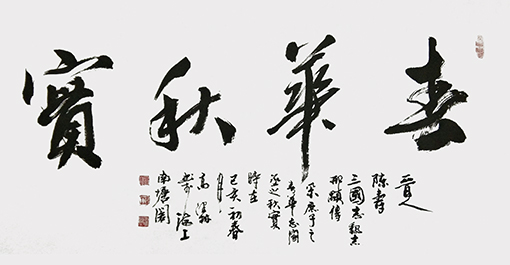 春華秋實
晉人
陳壽
三國志魏志
邢顒傳
采庶子之
春華忘家
丞之秋實
時在
己亥初春
月
高
海上
南塘閣